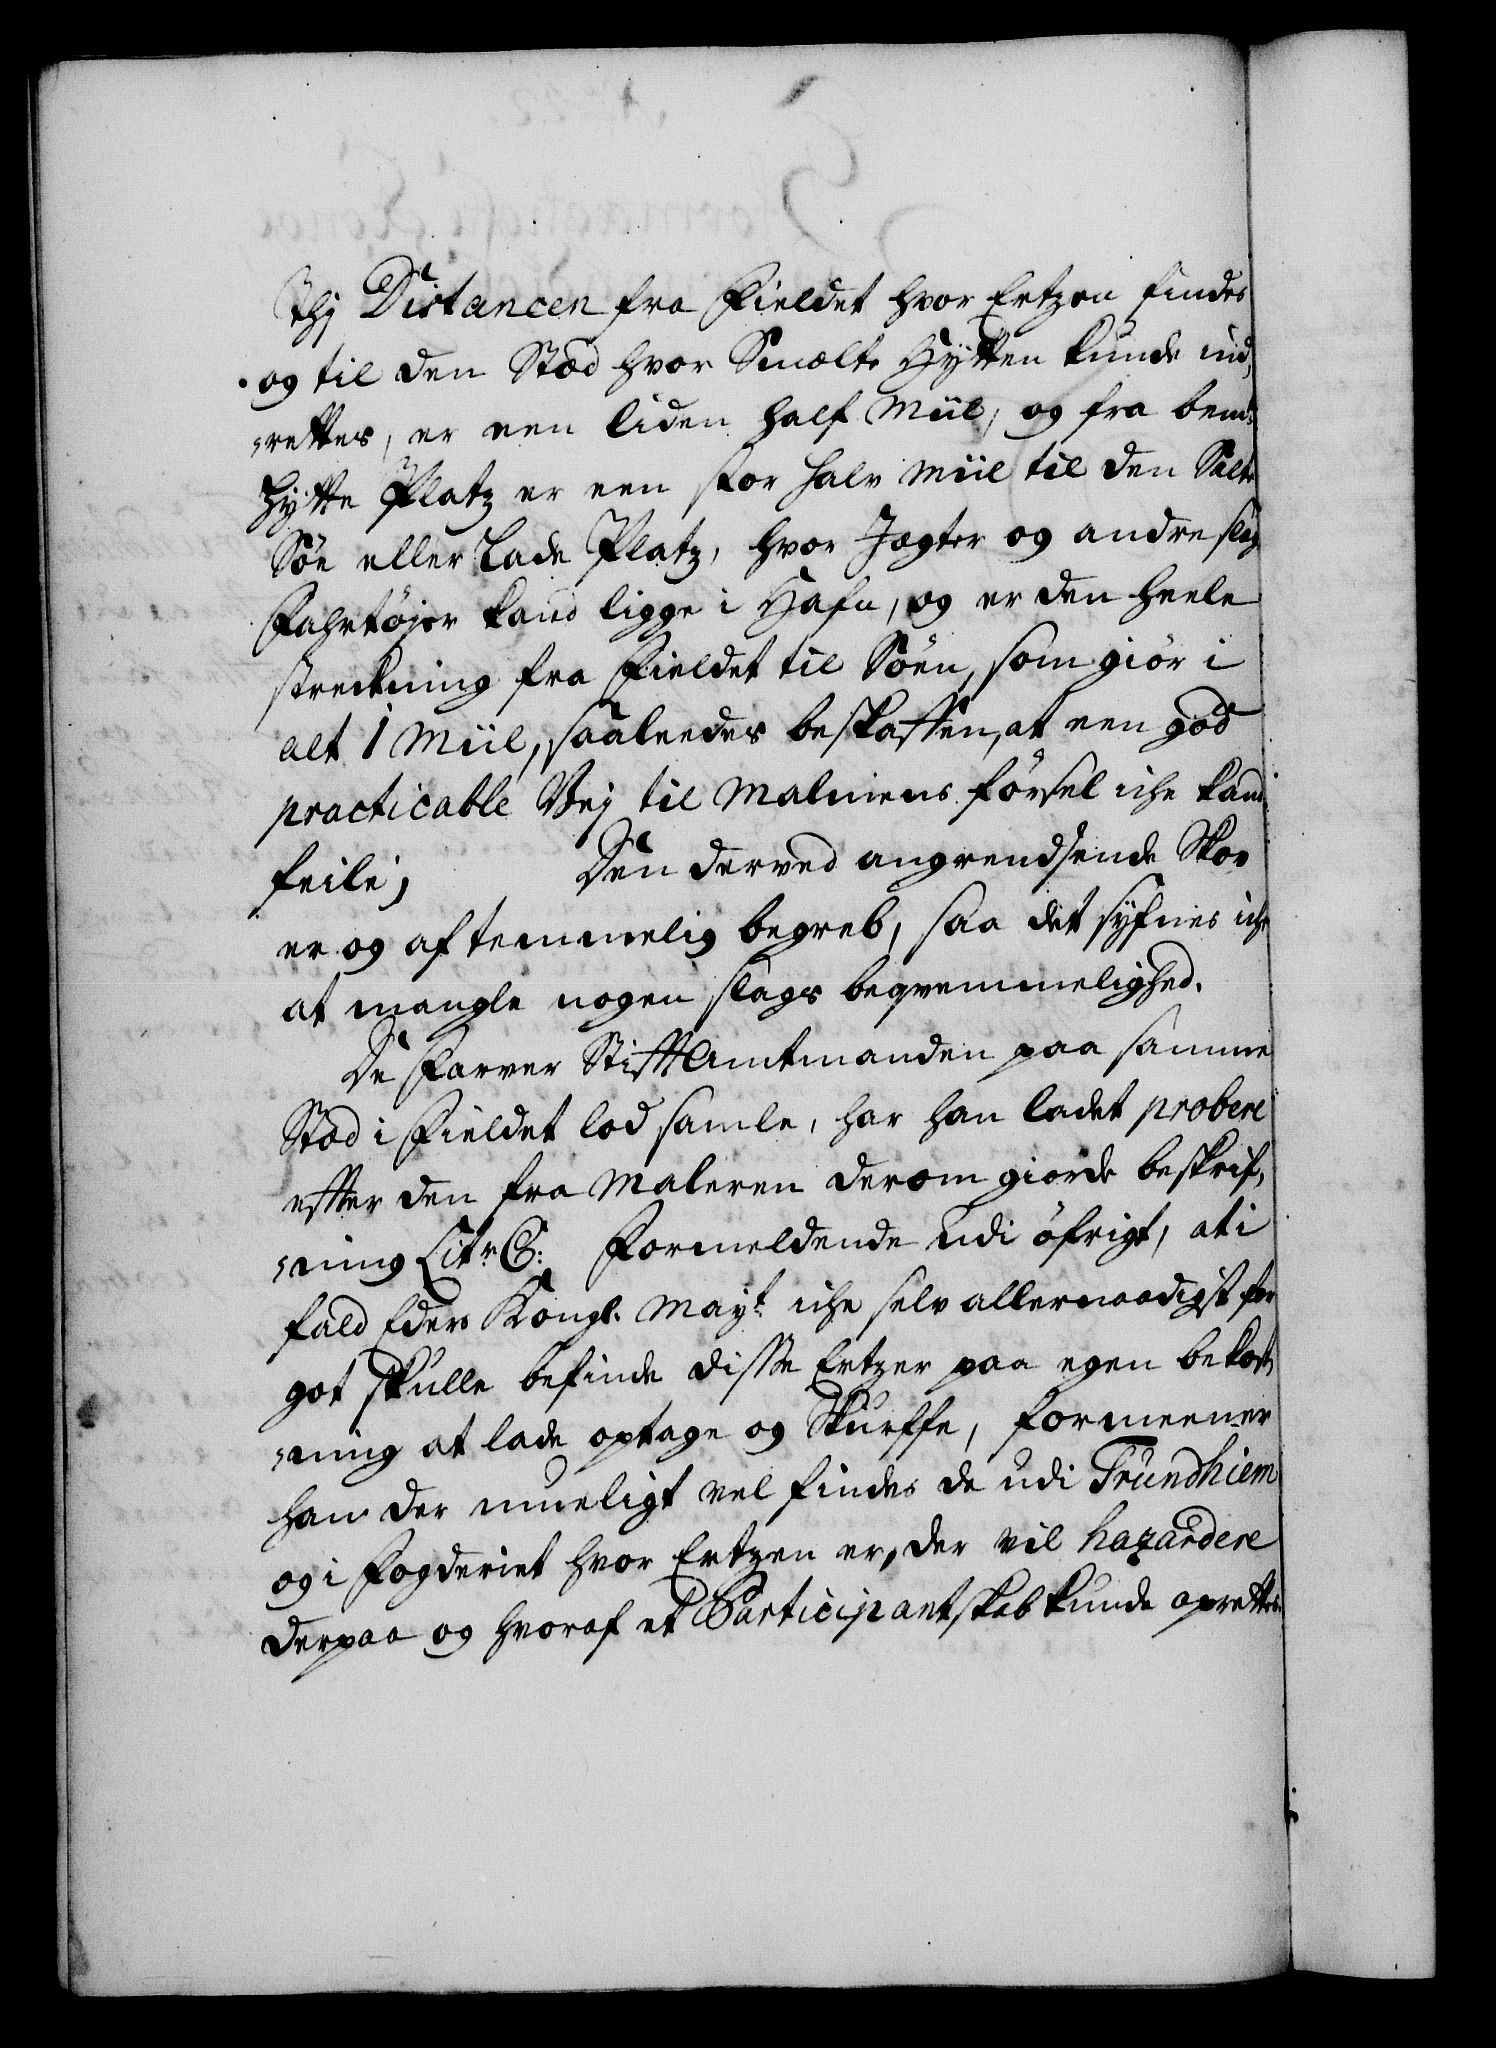 Thj Distancen fra Fieldet hvor Ertzen findes
og til den Stæd hvor Smælte Hytten kunde ind,
,rettes, er een liden half Miil, og fra bemte
Hytte Platz er een stor halv Miil til den Salte
Söe eller Lade Platz, hvor Jagter og andre slags
Fahrtøjer kand ligge i Hafn, og er den heele
streckning fra Fieldet til Söen, som giör i
alt 1 Miil, saaleedes beskaffen, at een god
practicable Vej til Malmens försel iche kand
feile, Den derved angrendsende Skov
er og af temmelig begreb, saa det syfnes iche
at mangle nogen slags beqvemmelighed.
De Farver StifftAmtmanden paa samme
Stæd i Fieldet lod samle, har han ladet probere
effter den fra Maleren derom giorde beskrif,
,ning Litr. C: Formeldende udi öfrigt, at i
fald Eders Kongl. Mayt. iche selv allernaadigst for
got skulle befinde disse Ertzer paa egen bekost,
,ning at lade optage og Skurffe, formeener
han der mueligt vel findes de udi Trundhiem
og i Fogderiet hvor Ertzen er, der vil hazardere
derpaa og hvoraf et Participantskab kunde oprettes.